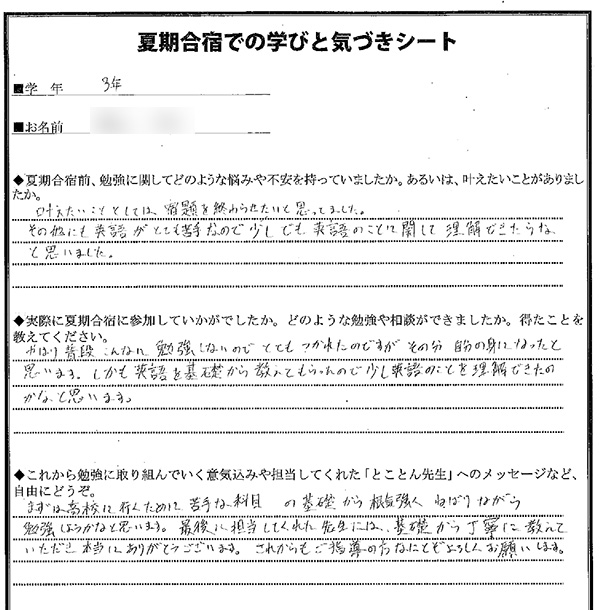 夏期合宿での学びと気づきシート
■学 年 3年
■お名前
◆夏期合宿前、勉強に関してどのような悩みや不安を持っていましたか。あるいは、叶えたいことがありまし
たか。
叶えたいこととしては、宿題を終わらせたいと思ってました。
その他にも英語がとても苦手なので少しでも英語のことに関して理解できたらな
と思いました。
◆実際に夏期合宿に参加していかがでしたか。どのような勉強や相談ができましたか。得たことを
教えてください。
やはり普段こんなに勉強しないのでとてもつかれたのですがその分自分の身になったと
思います。しかも英語を基礎から教えてもらったので少し英語のことを理解できたの
かなと思います。
◆これから勉強に取り組んでいく意気込みや担当してくれた「とことん先生」へのメッセージなど、
自由にどうぞ。
まずは高校に行くために苦手な科目 の基礎から根気強くねばりながら
勉強しようかなと思います。最後に担当してくれた先生には、基礎から丁寧に教えて
いただき本当にありがとうございます。これからもご指導の方なにとぞよろしくお願いします。